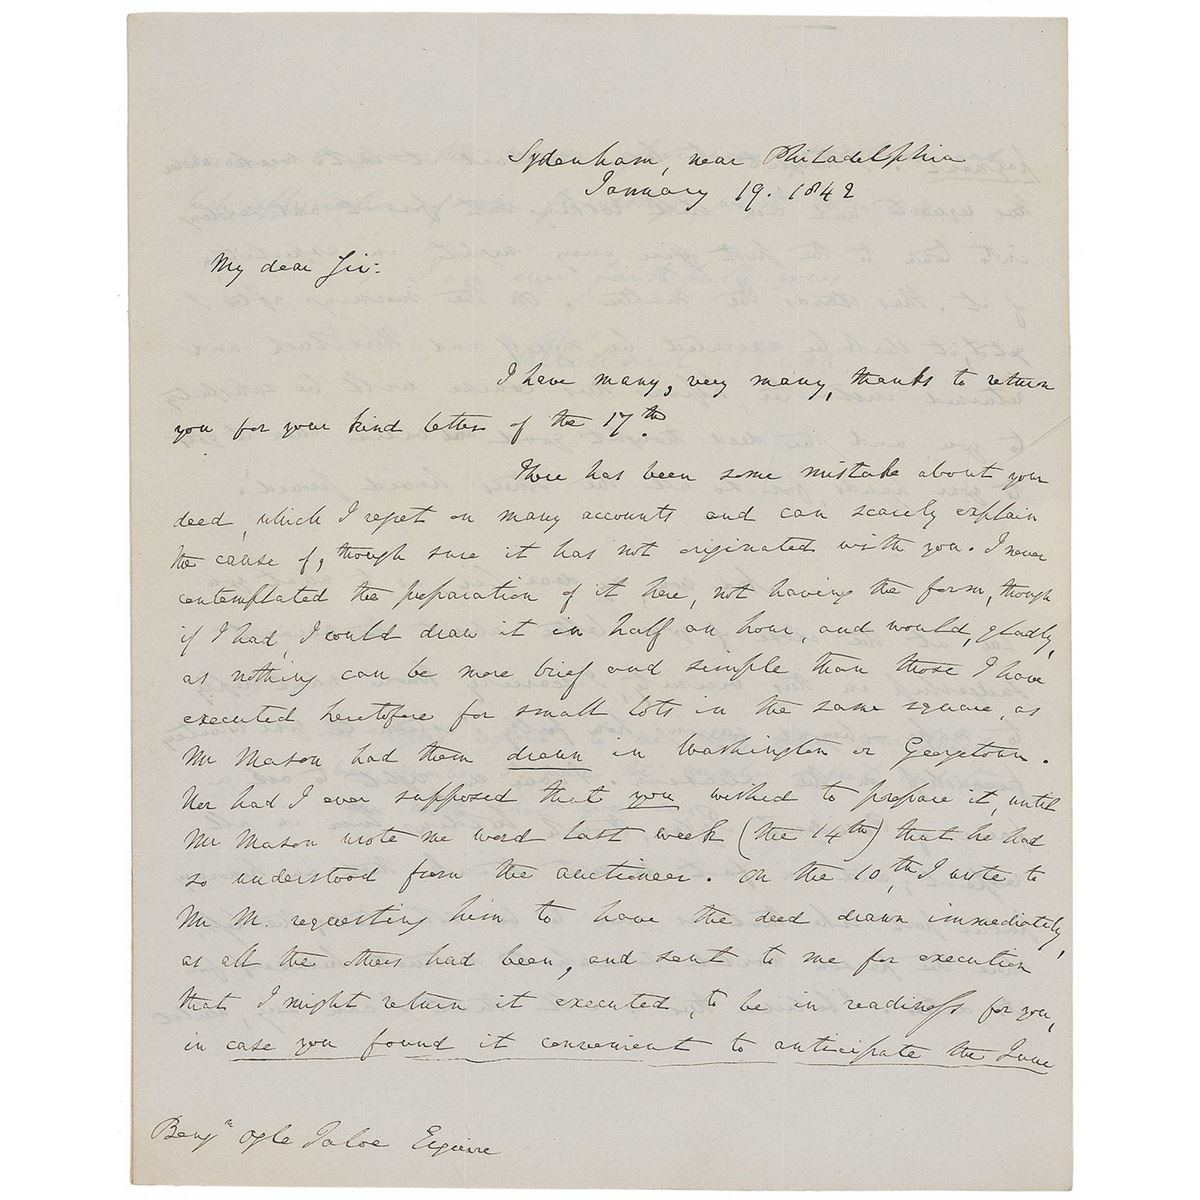 Sydenham, near Philadelphia
January 19. 1842
My dear Sir:
I have many, very many, thanks to return
you for your kind letter of the 17th
There has been some mistake about your
deed, which I regret on many accounts and can scarcely explain
the cause of, though sure it has not originated with you. I never
contemplated the preparation of it here, not having the form, though
if I had, I could draw it in half an hour, and would, gladly,
as nothing can be more brief and simple than those I have
executed heretofore for small lots in the same square, as
Mr Mason had them drawn in Washington or Georgetown.
Nor had I ever supposed that you wished to prepare it, until
Mr Mason wrote me word last week (the 14th) that he had
so understood from the auctioneer. On the 10th, I wrote to
Mr M. requesting him to have the deed drawn immediately,
as all the others had been, and sent to me for execution
that I might return it executed, to be in readiness for you,
in case you found it convenient to anticipate the June
Benjn Ogle Taloe Esquire